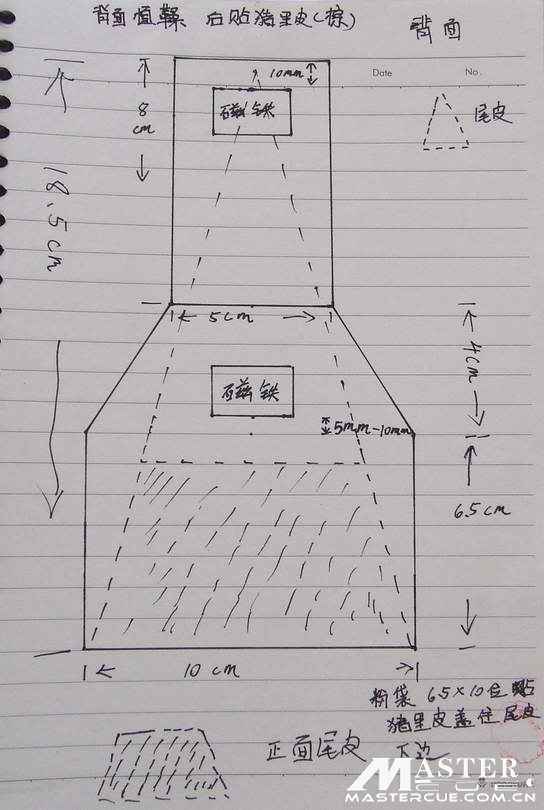 背面植鞣 后贴猪里皮(棕)
背面
Date No.
10mm
8
cm
磁铁
尾皮
18.5cm
5cm
4cm
磁铁
5mm-10mm
6.5cm
10cm
粉袋 6.5×10位 贴
猪里皮盖住尾皮
下边
正面尾皮
MASTER
MASTERCUE.COM.CN